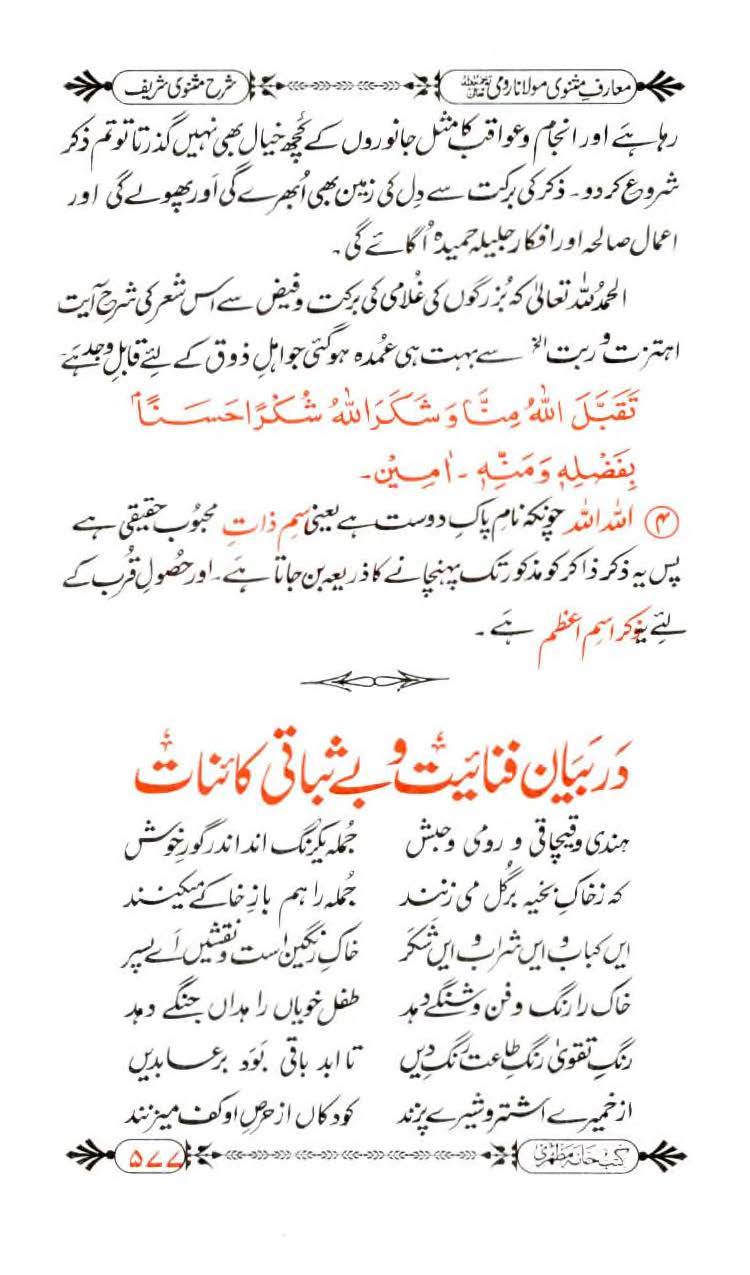 معارف مثنوی مولانا رومی رحمہ اللہ تعالیٰ
شرح مثنوی شریف
رہا ہے اور انجام و عواقب کا مثل جانوروں کے کچھ خیال بھی نہیں گذرتا تو تم ذکر
شروع کر دو۔ ذکر کی برکت سے دِل کی زمین بھی اُبھرے گی اَور پھولے گی اور
اعمال صالحہ اور افکار جلیلہ حمیدہ اُگائے گی۔
الحمدُ للہ تعالیٰ کہ بُزرگوں کی غُلامی کی برکت و فیض سے اس شعر کی شرح آیت
اھتزت و ربت الخ سے بہت ہی عُمدہ ہو گئی جو اہلِ ذوق کے لئے قابلِ وجد ہے
تَقَبَّلَ اللّٰهُ مِنَّا وَ شَكَرَ اللّٰهُ شُكْرًا حَسَنًا
بِفَضْلِهٖ وَمَنِّهٖ ۔ اٰمِیْن۔
④ اللہ اللہ چونکہ نامِ پاکِ دوست ہے یعنی سمِ ذاتِ محبُوب حقیقی ہے
پس یہ ذکر ذاکر کو مذکور تک پہنچانے کا ذریعہ بن جاتا ہے۔ اور حصُولِ قُرب کے
لئے یہ ذکر اسِم اعظم ہے ۔
دَر بَیَان فنائیت و بے ثباتی کائنات
ہندی و قیچاقی و رومی و حبش	جُملہ یکرنگ اند اندر گور خوش
کہ زخاکِ بخیہ بر گُل می زنند	جُملہ را ہم بازِ خاکے میکنند
ایں کباب و ایں شراب و ایں شکر	خاکِ رنگین است و نقشیں اَے پسر
خاک را رنگ و فن و سنگے دہد	طفل خویاں را بداں جنگے دہد
رنگِ تقویٰ رنگِ طاعت رنگِ دِیں	تا ابد باقی بَود بر عابدیں
از خمیرے اشتر و شیرے پزند	کودکاں از حرصِ او کف میزنند
کتب خانہ مظہری
۵۷۷